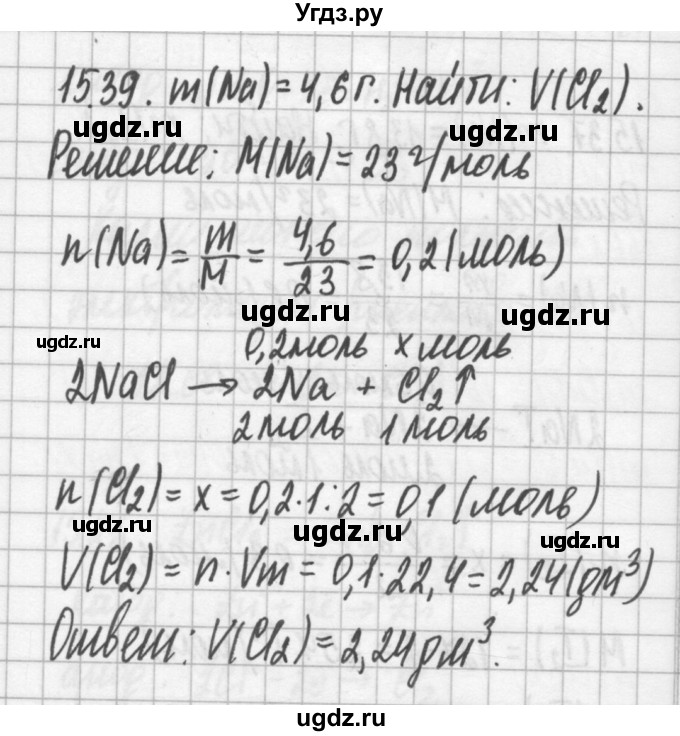 Угдз.ру
15.39. m(Na)=4,6г. Найти: V(Cl₂).
ugdz.ru ugdz.ru
Решение: M(Na)=23 г/моль
n(Na)= m/M = 4,6/23 = 0,2(моль)
ugdz.ru ugdz.ru
ugdz.ru 0,2моль x моль
2NaCl → 2Na + Cl₂↑
ugdz.ru
2моль 1моль
n(Cl₂)=x=0,2·1:2=0,1(моль)
ugdz.ru ugdz.ru ugdz.ru
V(Cl₂)=n·Vm=0,1·22,4=2,24(дм³)
Ответ: V(Cl₂)=2,24дм³.
ugdz.ru ugdz.ru
ugdz.ru